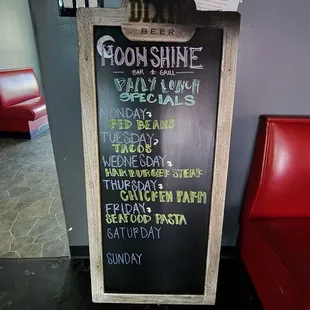 DIXIE
BEER
MOONSHINE
BAR & GRILL
DAILY LUNCH
SPECIALS
MONDAY
RED BEANS
TUESDAY
TACOS
WEDNESDAY
HAMBURGER STEAK
THURSDAY
CHICKEN PARM
FRIDAY
SEAFOOD PASTA
SATURDAY
SUNDAY